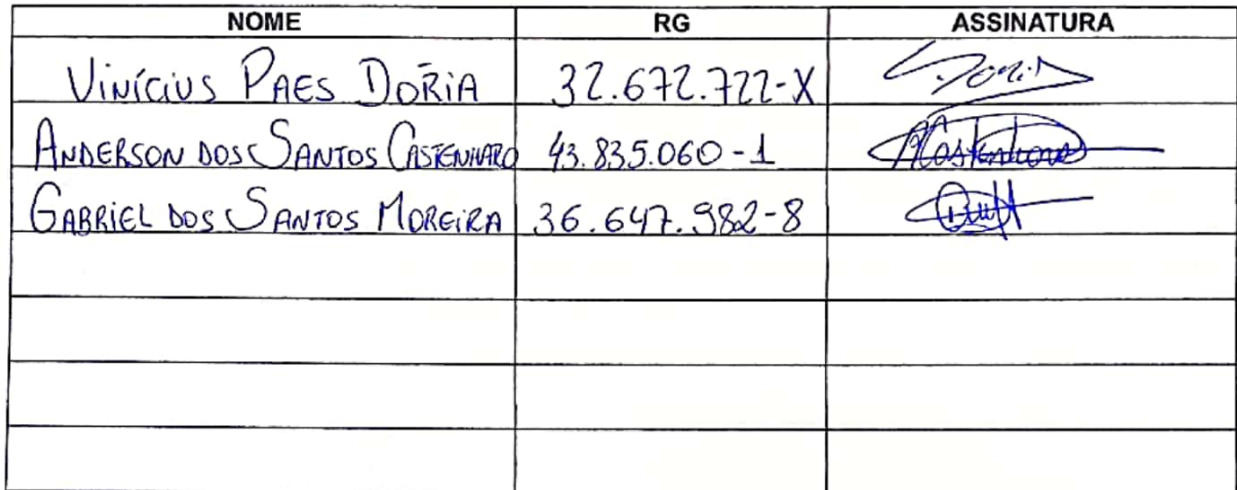 NOME RG ASSINATURA
VINÍCIUS PAES DORIA 32.672.722-X Doria
ANDERSON DOS SANTOS CASTENHARO 43.835.060-1
GABRIEL DOS SANTOS MOREIRA 36.647.982-8